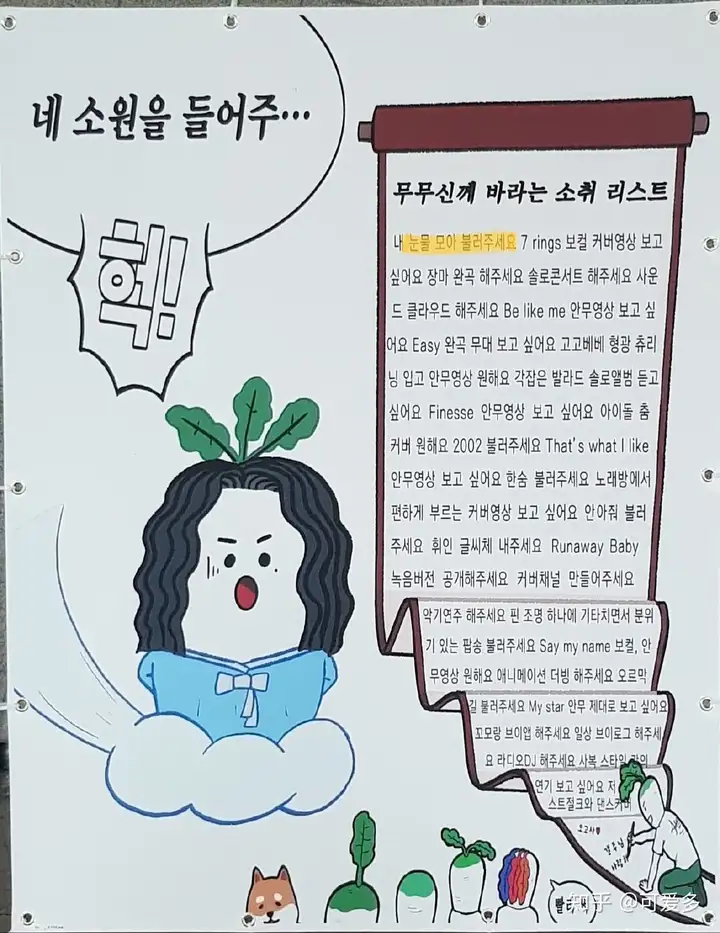 네 소원을 들어주…
헉!
무무신께 바라는 소취 리스트
내 눈물 모아 불러주세요 7 rings 보컬 커버영상 보고
싶어요 장마 완곡 해주세요 솔로콘서트 해주세요 사운
드 클라우드 해주세요 Be like me 안무영상 보고 싶
어요 Easy 완곡 무대 보고 싶어요 고고베베 형광 츄리
닝 입고 안무영상 원해요 각잡은 발라드 솔로앨범 듣고
싶어요 Finesse 안무영상 보고 싶어요 아이돌 춤
커버 원해요 2002 불러주세요 That's what I like
안무영상 보고 싶어요 한숨 불러주세요 노래방에서
편하게 부르는 커버영상 보고 싶어요 안아줘 불러
주세요 휘인 글씨체 내주세요 Runaway Baby
녹음버전 공개해주세요 커버채널 만들어주세요
악기연주 해주세요 핀 조명 하나에 기타치면서 분위
기 있는 팝송 불러주세요 Say my name 보컬, 안
무영상 원해요 애니메이션 더빙 해주세요 오르막
길 불러주세요 My star 안무 제대로 보고 싶어요
꼬모랑 브이앱 해주세요 일상 브이로그 해주세
요 라디오DJ 해주세요 사복 스타일
연기 보고 싶어요 저
스트절크와 댄스커버
知乎 @可爱多